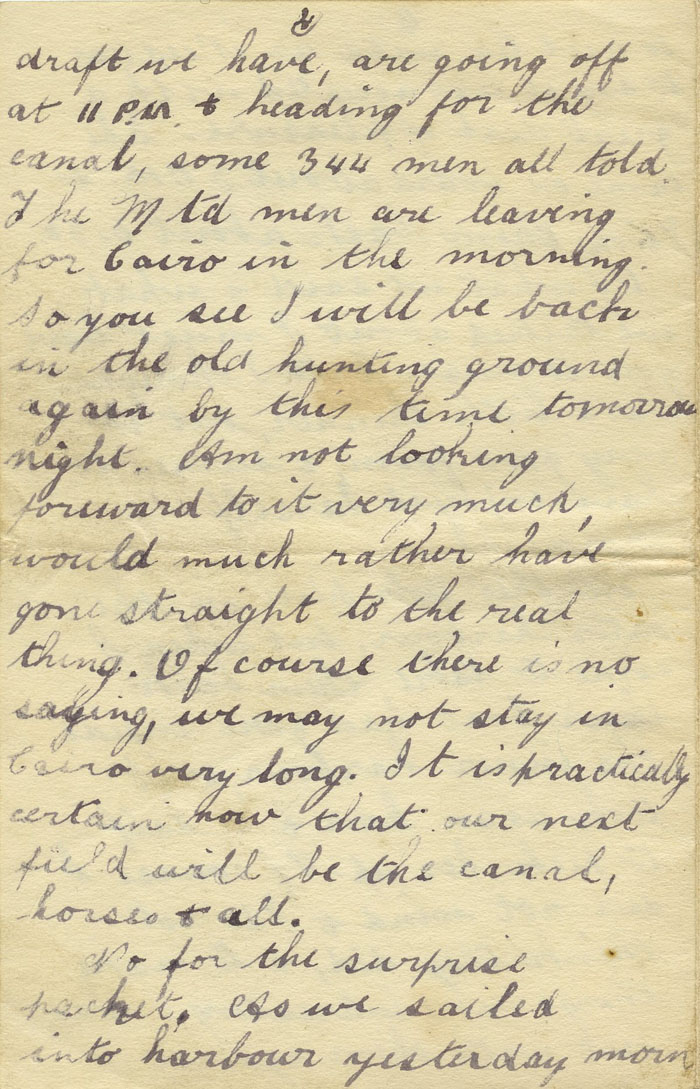 2
draft we have, are going off
at 11 P.M. & heading for the
canal, some 344 men all told.
The Mtd men are leaving
for Cairo in the morning.
So you see I will be back
in the old hunting ground
again by this time tomorrow
night. Am not looking
foreward to it very much,
would much rather have
gone straight to the real
thing. Of course there is no
saying, we may not stay in
Cairo very long. It is practically
certain now that our next
field will be the canal,
horses & all.
No for the surprise
packet. As we sailed
into harbour yesterday morn